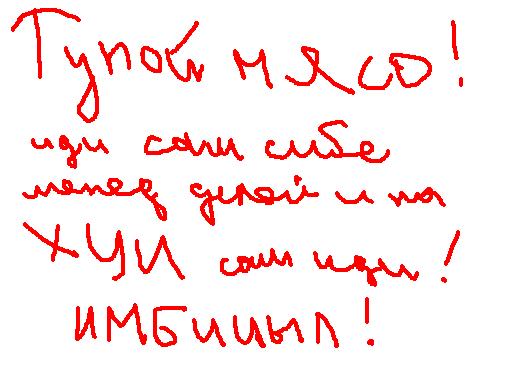 Тупой мясо!
иди сам себе
менец делой и на
ХУИ сам иди!
ИМБИЦЫЛ!